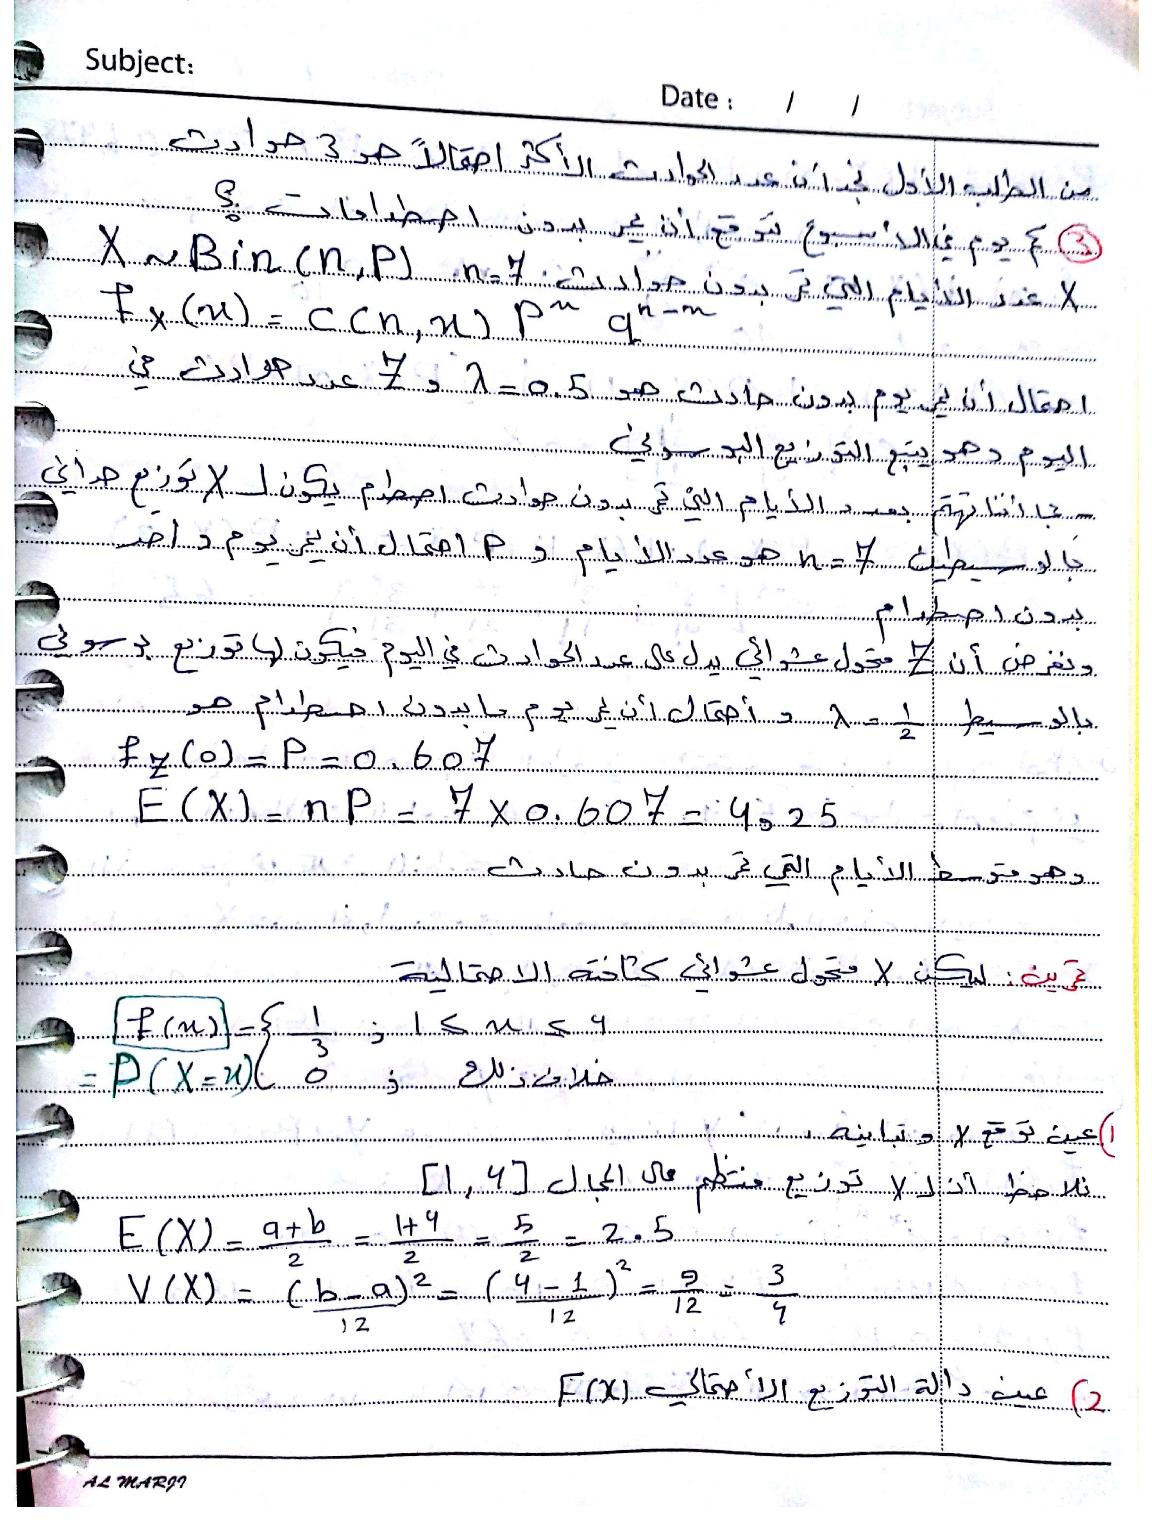 Subject:
Date : / /
من الطلب الأول نجد أن عدد الحوادث الأكثر احتمالاً هو 3 حوادث
③ كم يوم في الأسبوع نتوقع أن يمر بدون اصطدامات ؟
X عدد الأيام التي تمر بدون حوادث n=7 X ~ Bin(n,P)
f_X(x) = C(n,x) P^x q^(n-x)
احتمال أن يمر يوم بدون حادث هو λ=0.5 و Z عدد حوادث في
اليوم وهو يتبع التوزيع البوسوني
بما أننا نهتم بعدد الأيام التي تمر بدون حوادث اصطدام يكون لـ X توزيع حداني
بالوسيطين n=7 هو عدد الأيام و P احتمال أن يمر يوم واحد
بدون اصطدام
ونفرض أن Z متحول عشوائي يدل على عدد الحوادث في اليوم فيكون لها توزيع بوسوني
بالوسيط λ = 1/2 و احتمال أن يمر يوم ما بدون اصطدام هو
f_Z(0) = P = 0.607
E(X) = nP = 7 × 0.607 = 4,25
وهو متوسط الأيام التي تمر بدون حادث
تمرين : ليكن X متحول عشوائي كثافته الاحتمالية
f(x) = { 1/3 ; 1 ≤ x ≤ 4
= P(X=x) { 0 ; خلاف ذلك
1) عين توقع X و تباينه .
نلاحظ أن لـ X توزيع منتظم على المجال [1,4]
E(X) = (a+b)/2 = (1+4)/2 = 5/2 = 2.5
V(X) = (b-a)²/12 = (4-1)²/12 = 9/12 = 3/4
2) عين دالة التوزيع الأحتمالي F(X)
AL MARJI